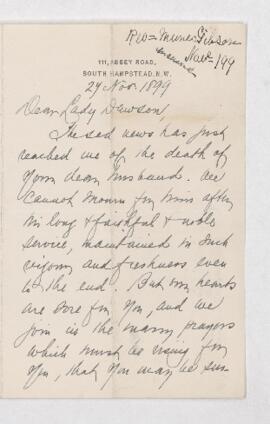 Rev = Munro Gibson
Nov /99
111, ABBEY ROAD,
SOUTH HAMPSTEAD, N.W.
24 Nov. 1899
Dear Lady Dawson,
The sad news has just
reached us of the death of
your dear husband. We
cannot mourn for him after
his long & faithful & noble
service, maintained in such
vigour and freshness even
to the end. But our hearts
are sore for you, and we
join in the many prayers
which must be rising for
you, that you may be sus-